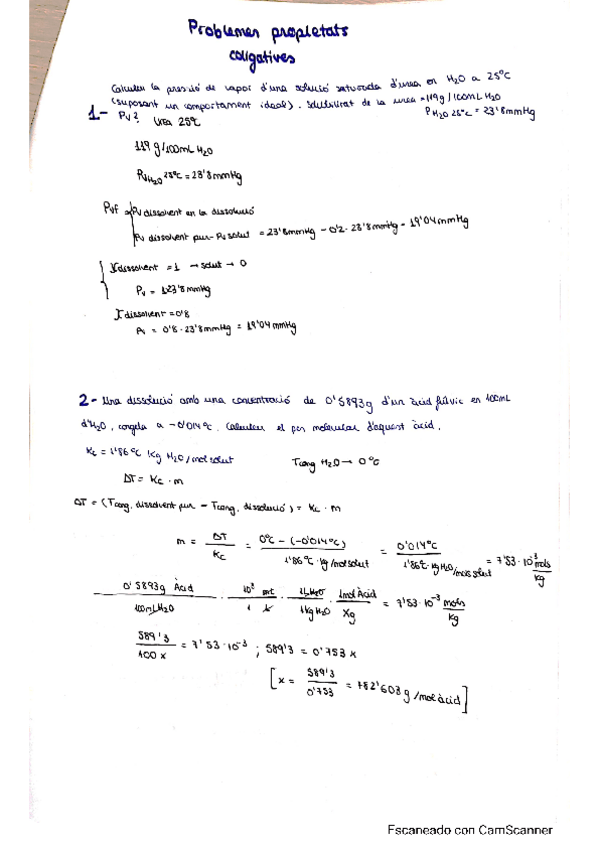 Problemes propietats
coligatives
Calculeu la pressió de vapor d'una solució saturada d'urea en H₂O a 25ºC
(suposant un comportament ideal). Solubilitat de la urea = 119g/100mL H₂O
1- Pv? Urea 25ºC P H₂O 25ºC = 23'8mmHg
119 g/100mL H₂O
Pv H₂O 25ºC = 23'8mmHg
Pvf = Pv dissolvent en la dissolució
Pv dissolvent pur - Pv solut = 23'8mmHg - 0'2 · 23'8mmHg = 19'04mmHg
X dissolvent = 1 → solut → 0
Pv = 1·23'8mmHg
X dissolvent = 0'8
Pv = 0'8 · 23'8mmHg = 19'04mmHg
2- Una dissolució amb una concentració de 0'5893g d'un àcid fúlvic en 100mL
d'H₂O, congela a -0'014ºC. Calculeu el pes molecular d'aquest àcid.
Kc = 1'86ºC Kg H₂O/mol solut Tcong H₂O → 0ºC
ΔT = Kc · m
ΔT = (Tcong. dissolvent pur - Tcong. dissolució) = Kc · m
m = ΔT/Kc = 0ºC - (-0'014ºC)/1'86ºC · Kg/mol solut = 0'014ºC/1'86ºC · Kg H₂O/mols solut = 7'53 · 10⁻³ mols/Kg
0'5893g Àcid/100mL H₂O · 10³ mL/1 L · 1L H₂O/1Kg H₂O · 1mol Àcid/Xg = 7'53 · 10⁻³ mols/Kg
589'3/100x = 7'53 · 10⁻³ ; 589'3 = 0'753 x
[x = 589'3/0'753 = 782'603 g/mol àcid]
Escaneado con CamScanner